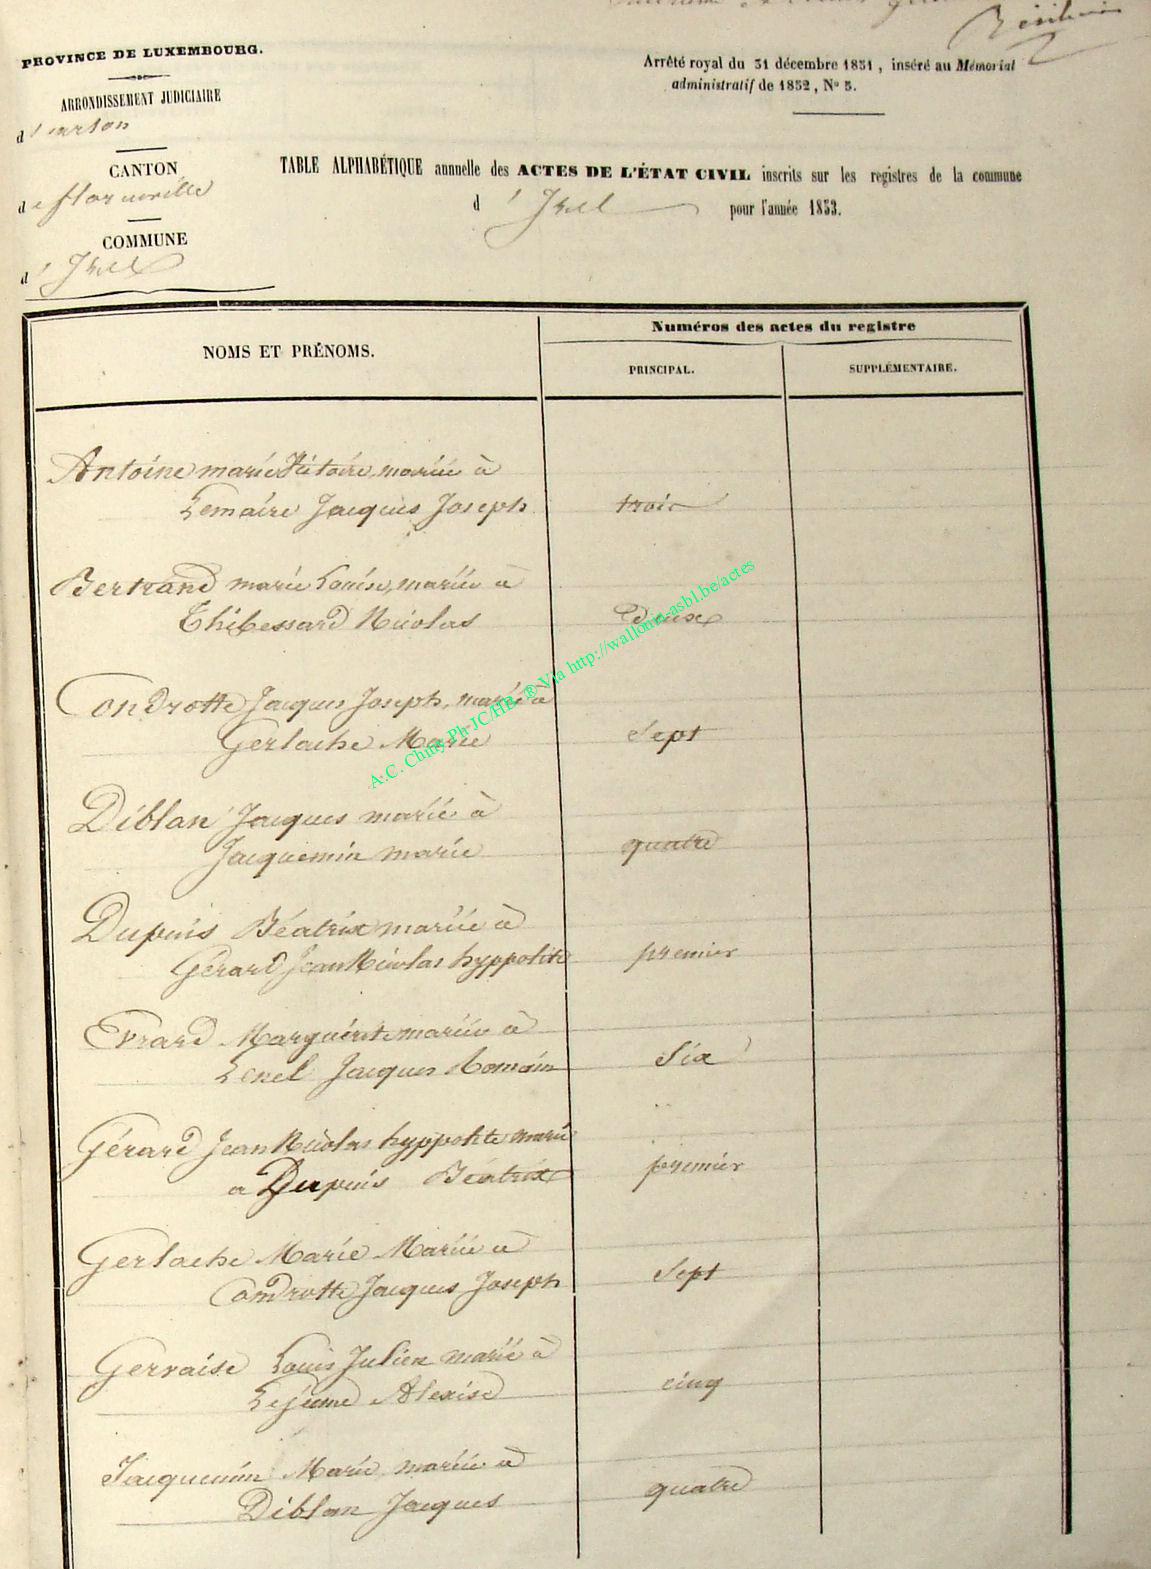 PROVINCE DE LUXEMBOURG.
ARRONDISSEMENT JUDICIAIRE
d'arlon
CANTON
de florenville
COMMUNE
d'Izel
Arrêté royal du 31 décembre 1851, inséré au Mémorial
administratif de 1852, No 5.
TABLE ALPHABÉTIQUE annuelle des ACTES DE L'ÉTAT CIVIL inscrits sur les registres de la commune
d'Izel pour l'année 1853.
NOMS ET PRÉNOMS.
Numéros des actes du registre
PRINCIPAL.
SUPPLÉMENTAIRE.
Antoine marie Victoire, mariée à
Lemaire Jacques Joseph trois
Bertrand marie Louise, mariée à
Thibessard Nicolas deux
Condrotte Jacques Joseph, marié à
Gerlache Marie sept
Diblan Jacques marié à
Jacquemin marie quatre
Dupuis Béatrix mariée à
Gérard Jean Nicolas hyppolite premier
Evrard Marguérite mariée à
Lenel Jacques Romain Six
Gérard Jean Nicolas hyppolite marié
a Dupuis Béatrix premier
Gerlache Marie Mariée à
Condrotte Jacques Joseph Sept
Gervaise Louis Julien marié à
Lejeune Alexise cinq
Jacquemin Marie mariée à
Diblan Jacques quatre
A.C. Chiny Ph JC/HB. ® Via http://wallonia-asbl.be/actes